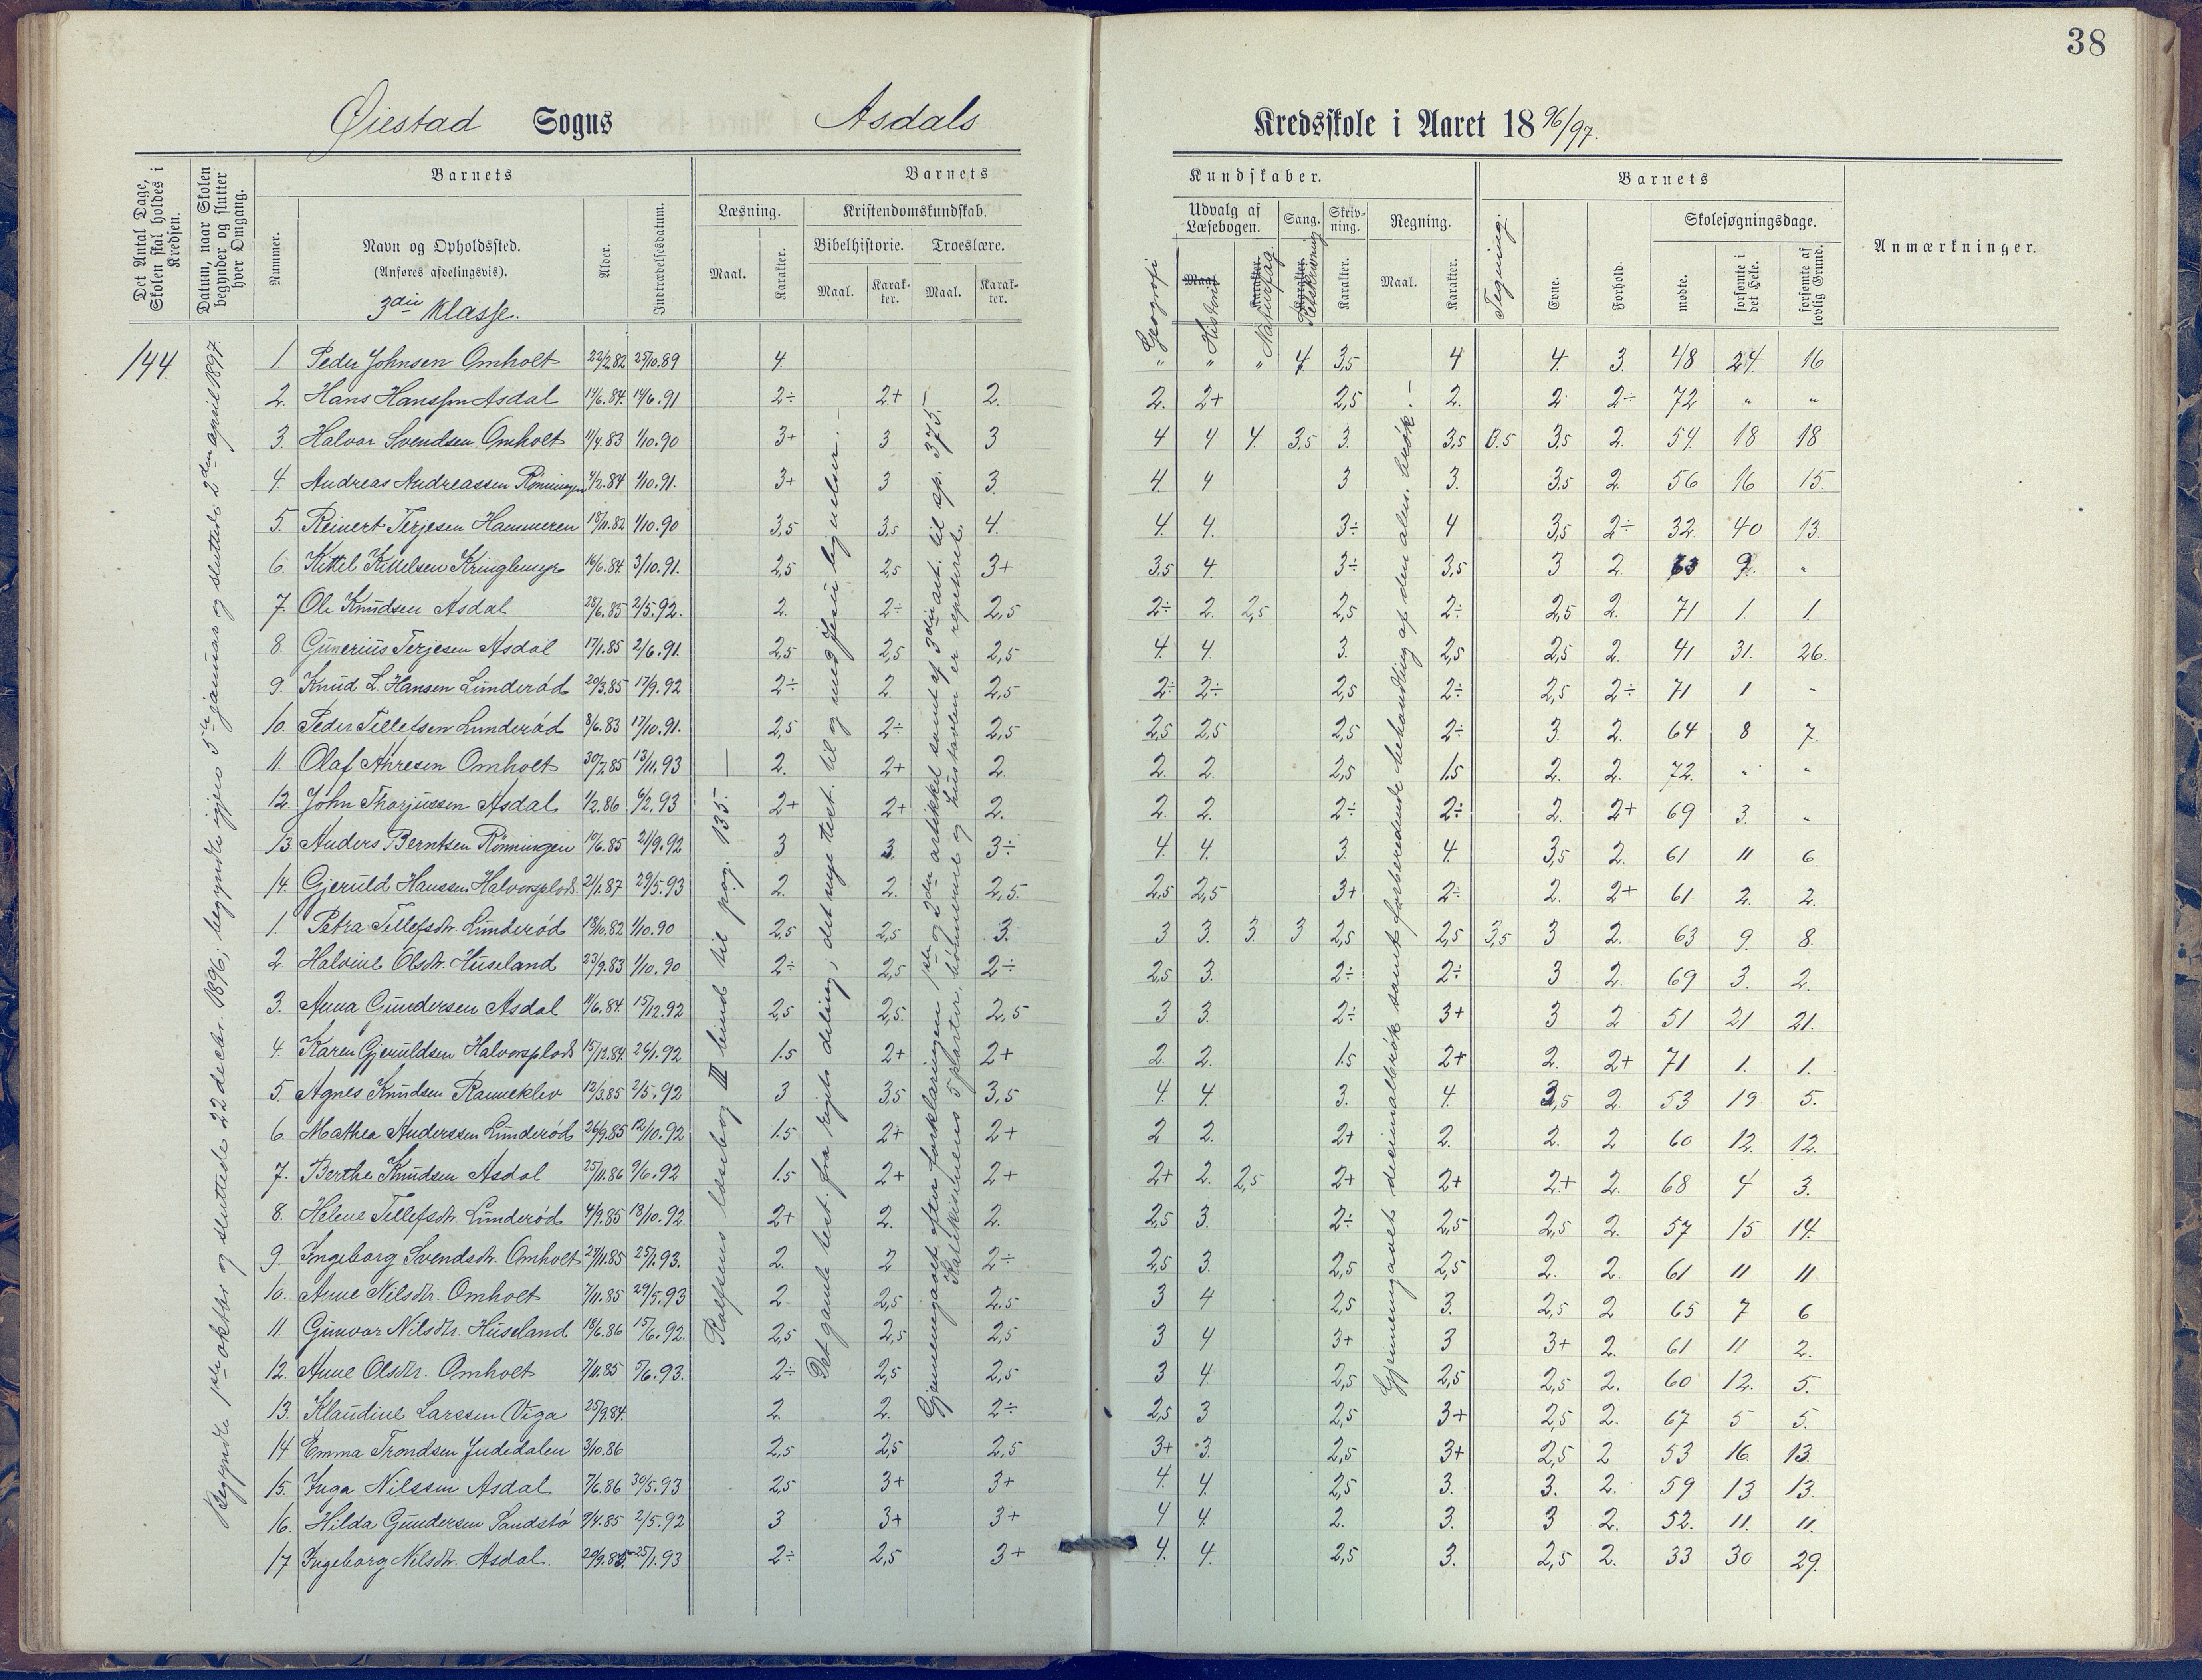 38
Øiestad Sogns Asdals Kredsskole i Aaret 1896/97.
Det Antal Dage, Skolen skal holdes i Kredsen.
Datum, naar Skolen begynder og slutter hver Omgang.
Barnets
Nummer.
Navn og Opholdssted.
(Anføres afdelingsvis).
3die Klasse.
Alder.
Indtrædelsesdatum.
Barnets Kundskaber.
Læsning.
Maal.
Karakter.
Kristendomskundskab.
Bibelhistorie.
Maal.
Karakter.
Troeslære.
Maal.
Karakter.
Udvalg af Læsebogen.
Geografi
Maal.
Historie
Karakter.
Naturfag
Sang.
Karakter.
Retskrivning
Skrivning.
Karakter.
Regning.
Maal.
Karakter.
Tegning.
Barnets
Evne.
Forhold.
Skolesøgningsdage.
mødte.
forsømte i det Hele.
forsømte af lovlig Grund.
Anmærkninger.
144.
Begyndte 1ste oktbr og sluttede 22 decbr. 1896; begyndte igjen 5te januar og sluttede 2den april 1897.
Rolfsens læsebog III bind til pag. 135. —
Det gamle test. fra rigets deling; det nye test. til og med Jesu lignelser. —
Gjennemgaaet efter forklaringen 1ste og 2den artikkel samt af 3die art. til sp. 375. —
Katekismens 5 parter, bønnerne og hustavlen er repeteret.
Gjennemgaaet decimalbrøk samt forberedende behandling af den alm. brøk. —
1. Peder Johnsen Omholt 22/2.82 25/10.89 4. " " " 4 3,5 4 4. 3. 48 24. 16
2. Hans Hanssen Asdal 14/6.84. 14/6.91 2÷ 2+ 2. 2. 2+ 2,5 2. 2 2÷ 72 " "
3. Halvor Svendsen Omholt 11/4.83 1/10.90 3+ 3 3 4 4 4. 3,5 3. 3,5 3.5 3,5 2. 54 18 18
4. Andreas Andreassen Rønningen 4/2.84 1/10.91. 3+ 3 3. 4. 4 3 3. 3.5 2. 56 16 15.
5. Reinert Terjesen Hammeren 18/11.82 1/10.90 3,5 3,5 4. 4. 4. 3÷ 4 3,5 2÷ 32. 40 13.
6. Kittil Kittelsen Kringlemyr 16/6.84 3/10.91. 2,5 2,5 3+ 3,5 4. 3÷ 3,5 3 2. 63 9. "
7. Ole Knudsen Asdal 28/6.85 2/5.92. 2. 2÷ 2,5 2÷ 2. 2,5 2,5 2÷ 2,5 2. 71 1. 1.
8. Gunerius Terjesen Asdal 17/1.85 2/6.91. 2,5 2,5 2,5 4. 4. 3. 2,5 2,5 2. 41 31. 26.
9. Knud L. Hansen Lunderød 20/3.85 17/9.92 2÷ 2. 2,5 2÷ 2÷ 2,5 2÷ 2,5 2÷ 71 1 "
10. Peder Tellefsen Lunderød 8/6.83 17/10.91. 2,5 2÷ 2,5 2,5 2,5 2,5 2÷ 3. 2. 64 8 7.
11. Olaf Ahresen Omholt 30/7.85 13/11.93 2. 2+ 2. 2. 2. 2,5 1.5 2. 2. 72. " "
12. John Thorjussen Asdal 1/2.86 6/2.93 2+ 2+ 2. 2. 2. 2÷ 2÷ 2. 2+ 69 3. "
13. Anders Berntsen Rønningen 19/6.85 21/9.92 3 3. 3÷ 4. 4. 3. 4. 3,5 2. 61 11 6.
14. Gjeruld Hanssen Halvorsplads. 21/1.87 29/5.93 2. 2. 2,5. 2,5 2,5 3+ 2÷ 2. 2+ 61 2. 2.
1. Petra Tellefsdtr. Lunderød 18/10.82 1/10.90 2,5 2,5 3. 3 3. 3. 3 2,5 2,5 3,5 3 2. 63 9. 8.
2. Halvine Olsdtr. Huseland 23/9.83 1/10.90 2÷ 2,5 2÷ 2,5 3. 2÷ 2÷ 3 2. 69 3. 2.
3. Anna Gundersen Asdal 11/6.84. 15/12.92 2,5 2,5. 2,5 3 3. 2÷ 3+ 3 2 51 21 21.
4. Karen Gjeruldsen Halvorsplads 15/12.84. 26/1.92 1.5 2+ 2+ 2. 2. 1.5 2+ 2. 2+ 71 1. 1.
5. Agnes Knudsen Ranneklev 12/3.85 2/5.92 3 3,5 3,5 4. 4. 3. 4. 3,5 2. 53 19 5.
6. Mathea Anderssen Lunderød 26/9.85 12/10.92 1.5 2+ 2+ 2 2. 2+ 2. 2. 2 60 12. 12.
7. Berthe Knudsen Asdal 25/11.86 9/6.92 1.5 2+ 2+ 2+ 2. 2,5 2+ 2+ 2+ 2. 68 4 3.
8. Helene Tellefsdtr. Lunderød 4/9.85 13/10.92. 2+ 2. 2. 2,5 3. 2÷ 2,5 2,5 2. 57 15 14.
9. Ingeborg Svendsdtr. Omholt 27/11.85 25/1.93. 2. 2 2÷ 2,5 3. 2,5 2,5 2. 2. 61 11 11
10. Anne Nilsdtr. Omholt 7/11.85 29/5.93 2 2,5 2.5 3 4 2,5 3. 2,5 2 65 7 6
11. Gunvor Nilsdtr. Huseland 18/6.86 15/6.92. 2,5 2,5 2,5 3 4 3+ 3 3+ 2. 61 11 2.
12. Anne Olsdtr. Omholt 7/11.85 5/6.93. 2÷ 2,5 2,5 3 4. 2,5 2,5 2,5 2. 60 12. 5.
13. Klaudine Larssen Viga 25/9.84. 2. 2. 2÷ 2,5 3 2,5 3+ 2,5 2. 67 5 5.
14 Emma Trondsen Judedalen 3/10.86 2,5 2,5 2,5 3+ 3. 2,5 3+ 2,5 2 53 16. 13.
15. Inga Nilssen Asdal 7/6.86 30/5.93 2,5 3+ 3+ 4. 4. 2,5 3. 3. 2. 59 13 13.
16. Hilda Gundersen Sandstø 9/4.85 2/5.92 3 3+ 3+ 4 4. 2. 3. 3 2. 52. 11. 11.
17 Ingeborg Nilsdtr. Asdal. 20/9.85. 25/1.93 2÷ 2,5 3+ 4. 4. 2,5 3. 2,5 2. 33 30 29.